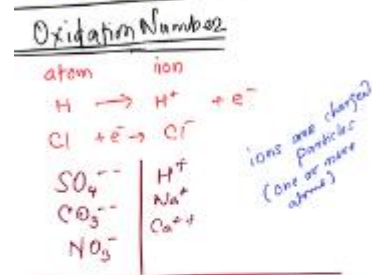 Oxidation Number
atom ion
H → H⁺ + e⁻
Cl + e⁻ → Cl⁻
SO₄⁻⁻ H⁺
CO₃⁻⁻ Na⁺
NO₃⁻ Ca⁺⁺
ions are charged
particles
(one or more
atoms)